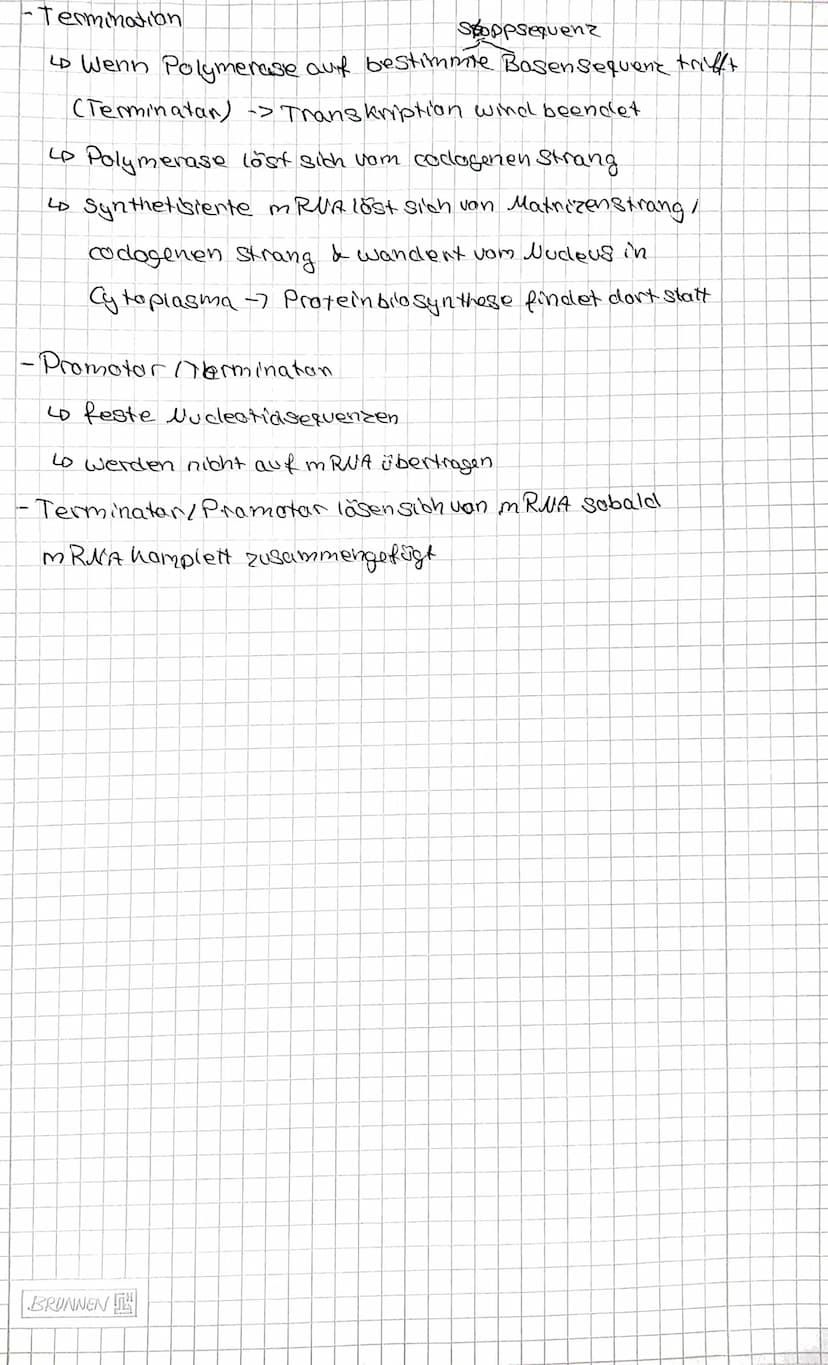 - Termination
Stoppsequenz
↳ Wenn Polymerase auf bestimmte Basensequenz trifft
(Terminator) -> Transkription wird beendet
↳ Polymerase löst sich vom codogenen Strang
↳ Synthetisierte mRNA löst sich von Matrizenstrang /
codogenen Strang & wandert vom Nucleus in
Cytoplasma -> Proteinbiosynthese findet dort statt
- Promotor / Terminator
↳ feste Nucleotidsequenzen
↳ werden nicht auf mRNA übertragen
- Terminator / Promotor lösen sich von mRNA sobald
mRNA komplett zusammengefügt
BRUNNEN